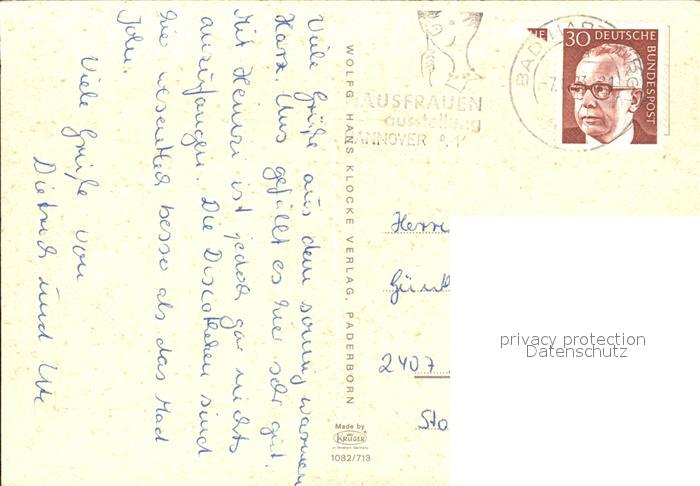 Viele Grüße aus dem sonnig warmen
Harz. Uns gefällt es hier sehr gut.
Mit Heinzi ist jedoch gar nichts
anzufangen. Die Discotheken sind
hier wesentlich besser als das Mad
John.
Viele Grüße von
Dietrich und Ute
WOLFG. HANS KLOCKE VERLAG, PADERBORN
Made by
KRÜGER
1082/713
HAUSFRAUEN
ausstellung
HANNOVER
BAD HARZBURG
30 DEUTSCHE
BUNDESPOST
Herrn
Günth
2407
Sto
privacy protection
Datenschutz